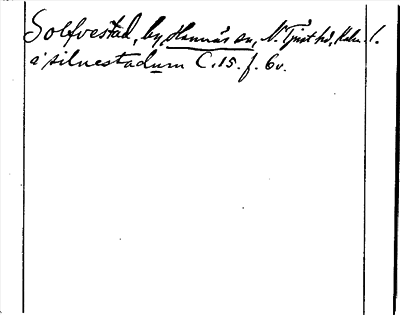 Solfvestad, by, Hannäs sn, N. Tjust hd, Kalm. l.
i siluestadum C. 15. f. 6v.